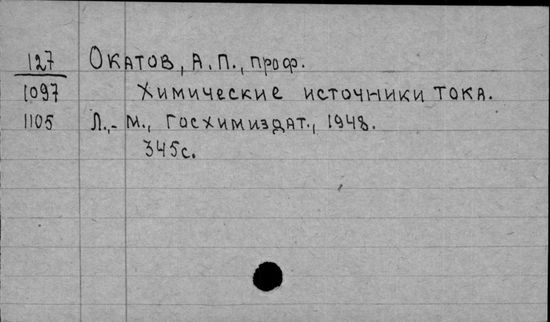 127 Окатов, А.П., проф.
1097 Химические источники тока.
1105 Л.,-М., Госхимиздат., 1948.
345с.